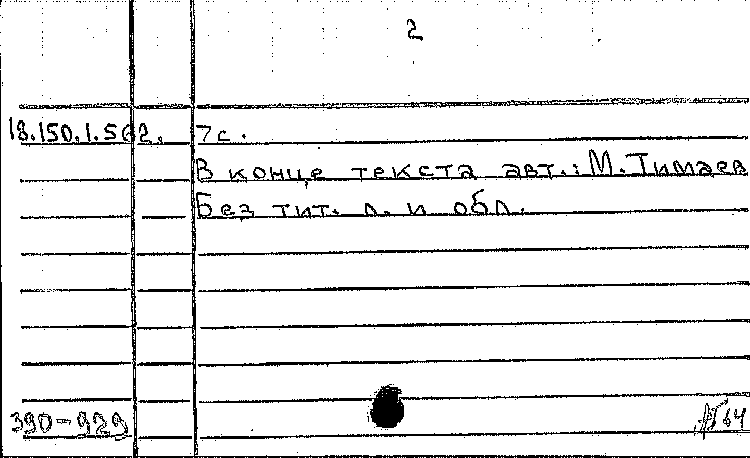 2
18.150.1.562. 7 с.
В конце текста авт.: М. Тимаев
Без тит. л. и обл.
390-929
64